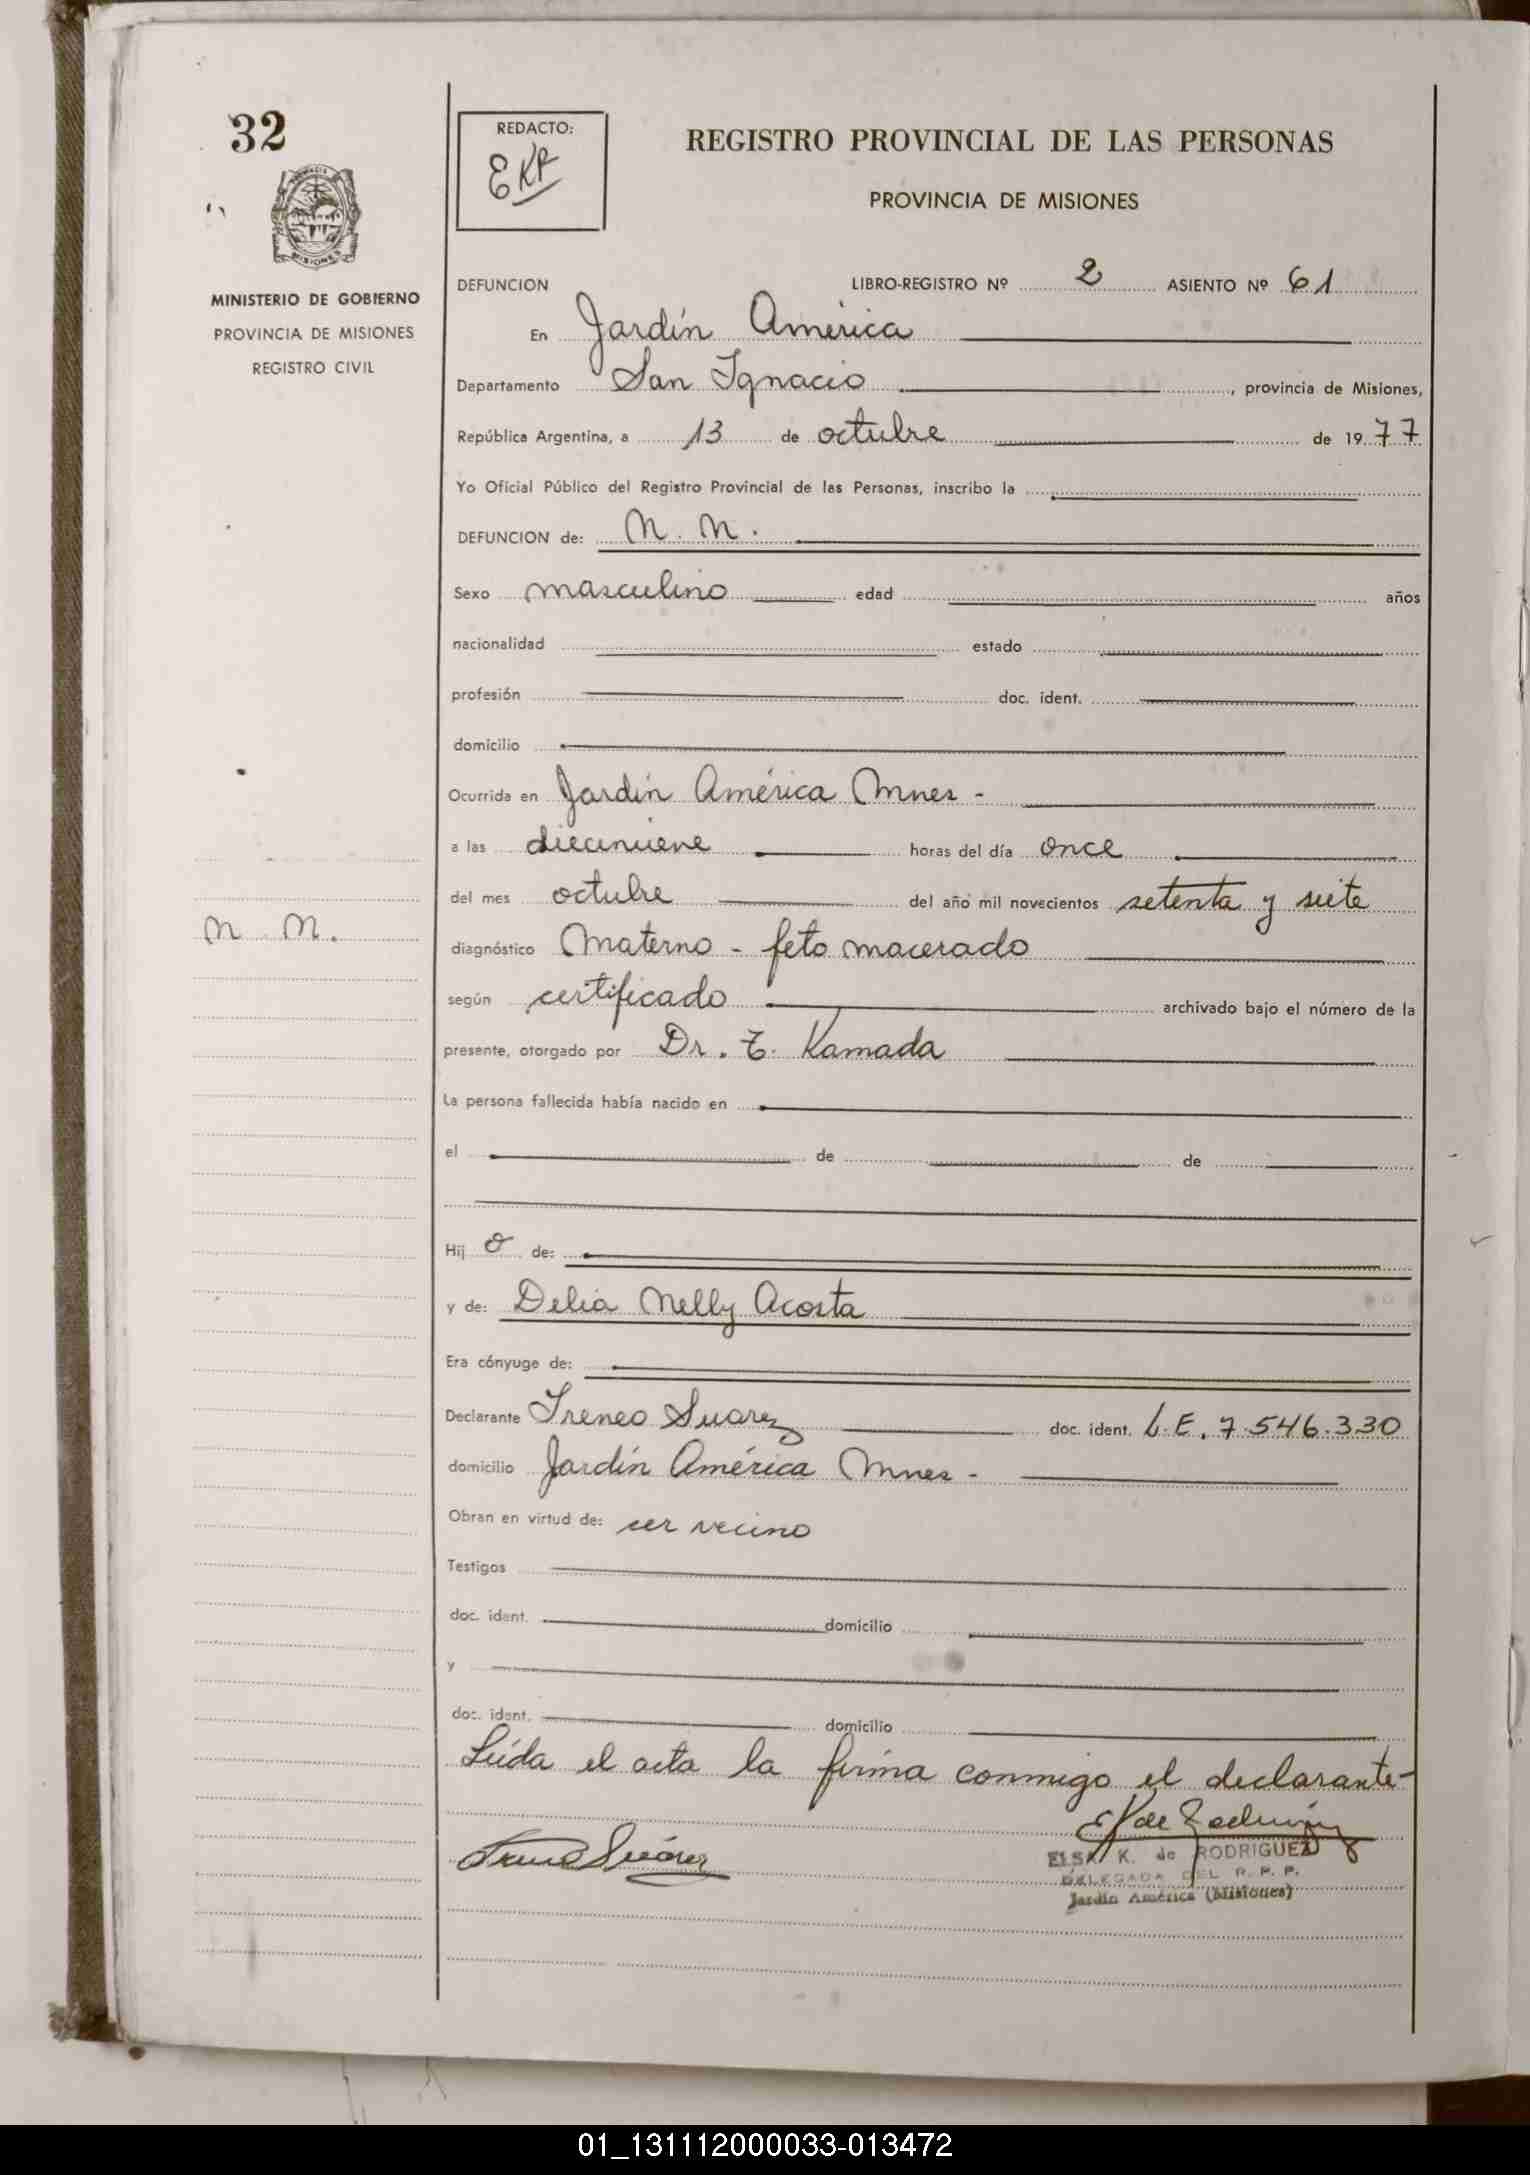 32
REDACTO:
EKR
REGISTRO PROVINCIAL DE LAS PERSONAS
PROVINCIA DE MISIONES
MINISTERIO DE GOBIERNO
PROVINCIA DE MISIONES
REGISTRO CIVIL
DEFUNCION LIBRO-REGISTRO Nº 2 ASIENTO Nº 61
En Jardín América
Departamento San Ignacio, provincia de Misiones,
República Argentina, a 13 de octubre de 1977
Yo Oficial Público del Registro Provincial de las Personas, inscribo la
DEFUNCION de: N. N.
Sexo masculino edad años
nacionalidad estado
profesión doc. ident.
domicilio
Ocurrida en Jardín América Mnes -
a las diecinueve horas del día once
del mes octubre del año mil novecientos setenta y siete
N. N.
diagnóstico Materno - feto macerado
según certificado archivado bajo el número de la
presente, otorgado por Dr. T. Kamada
La persona fallecida había nacido en
el de de
Hijo de:
y de: Delia Nelly Acosta
Era cónyuge de:
Declarante Ireneo Suarez doc. ident. L.E. 7.546.330
domicilio Jardín América Mnes -
Obran en virtud de: ser vecino
Testigos
doc. ident. domicilio
y
doc. ident. domicilio
Leída el acta la firma conmigo el declarante-
E K de Rodriguez
Ireneo Suárez
ELSA K. de RODRIGUEZ
DELEGADA DEL R. P. P.
Jardín América (Misiones)
01_131112000033-013472